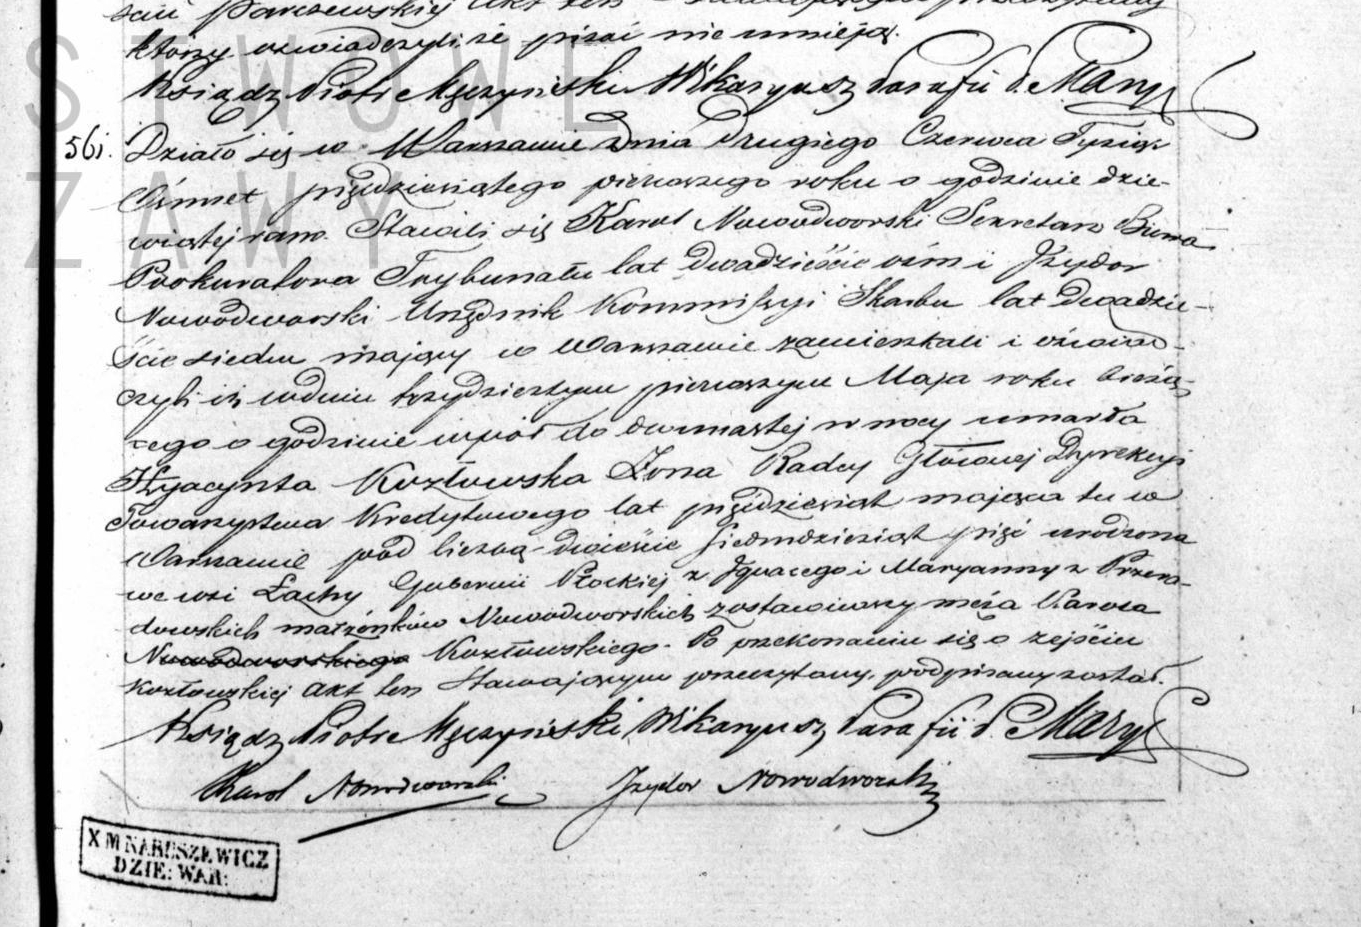 Parczewskiej Akt ten
którzy oświadczyli że pisać nie umieją.
Ksiądz Piotr Męczyński Wikaryusz Parafii P. Maryi
561. Działo się w Warszawie Dnia Drugiego Czerwca Tysiąc
Ośmset pięćdziesiątego pierwszego roku o godzinie dzie-
wiątej rano. Stawili się Karol Nowodworski Sekretarz Biura
Prokuratora Trybunału lat dwadzieście ośm i Izydor
Nowodworski Urzędnik Kommissyi Skarbu lat Dwadzie-
ście siedm mający w Warszawie zamieszkali i oświad-
czyli iż w dniu trzydziestym pierwszym Maja roku bieżą-
cego o godzinie wpół do dwunastej w nocy umarła
Hyacynta Kozłowska Żona Radcy Głównej Dyrekcyi
Towarzystwa Kredytowego lat pięćdziesiąt mająca tu w
Warszawie pod liczbą dwieście siedmdziesiąt pięć urodzona
we wsi Łachy Gubernii Płockiej z Ignacego i Maryanny z Przera-
dowskich małżonków Nowodworskich zostawiwszy męża Karola
Nowodworskiego Kozłowskiego. Po przekonaniu się o zejściu
Kozłowskiej Akt ten Stawającym przeczytany, podpisany został.
Ksiądz Piotr Męczyński Wikaryusz Parafii P. Maryi
Karol Nowodworski Izydor Nowodworski
X M NARUSZEWICZ
DZIE: WAR:
STWOWE
ZAWY